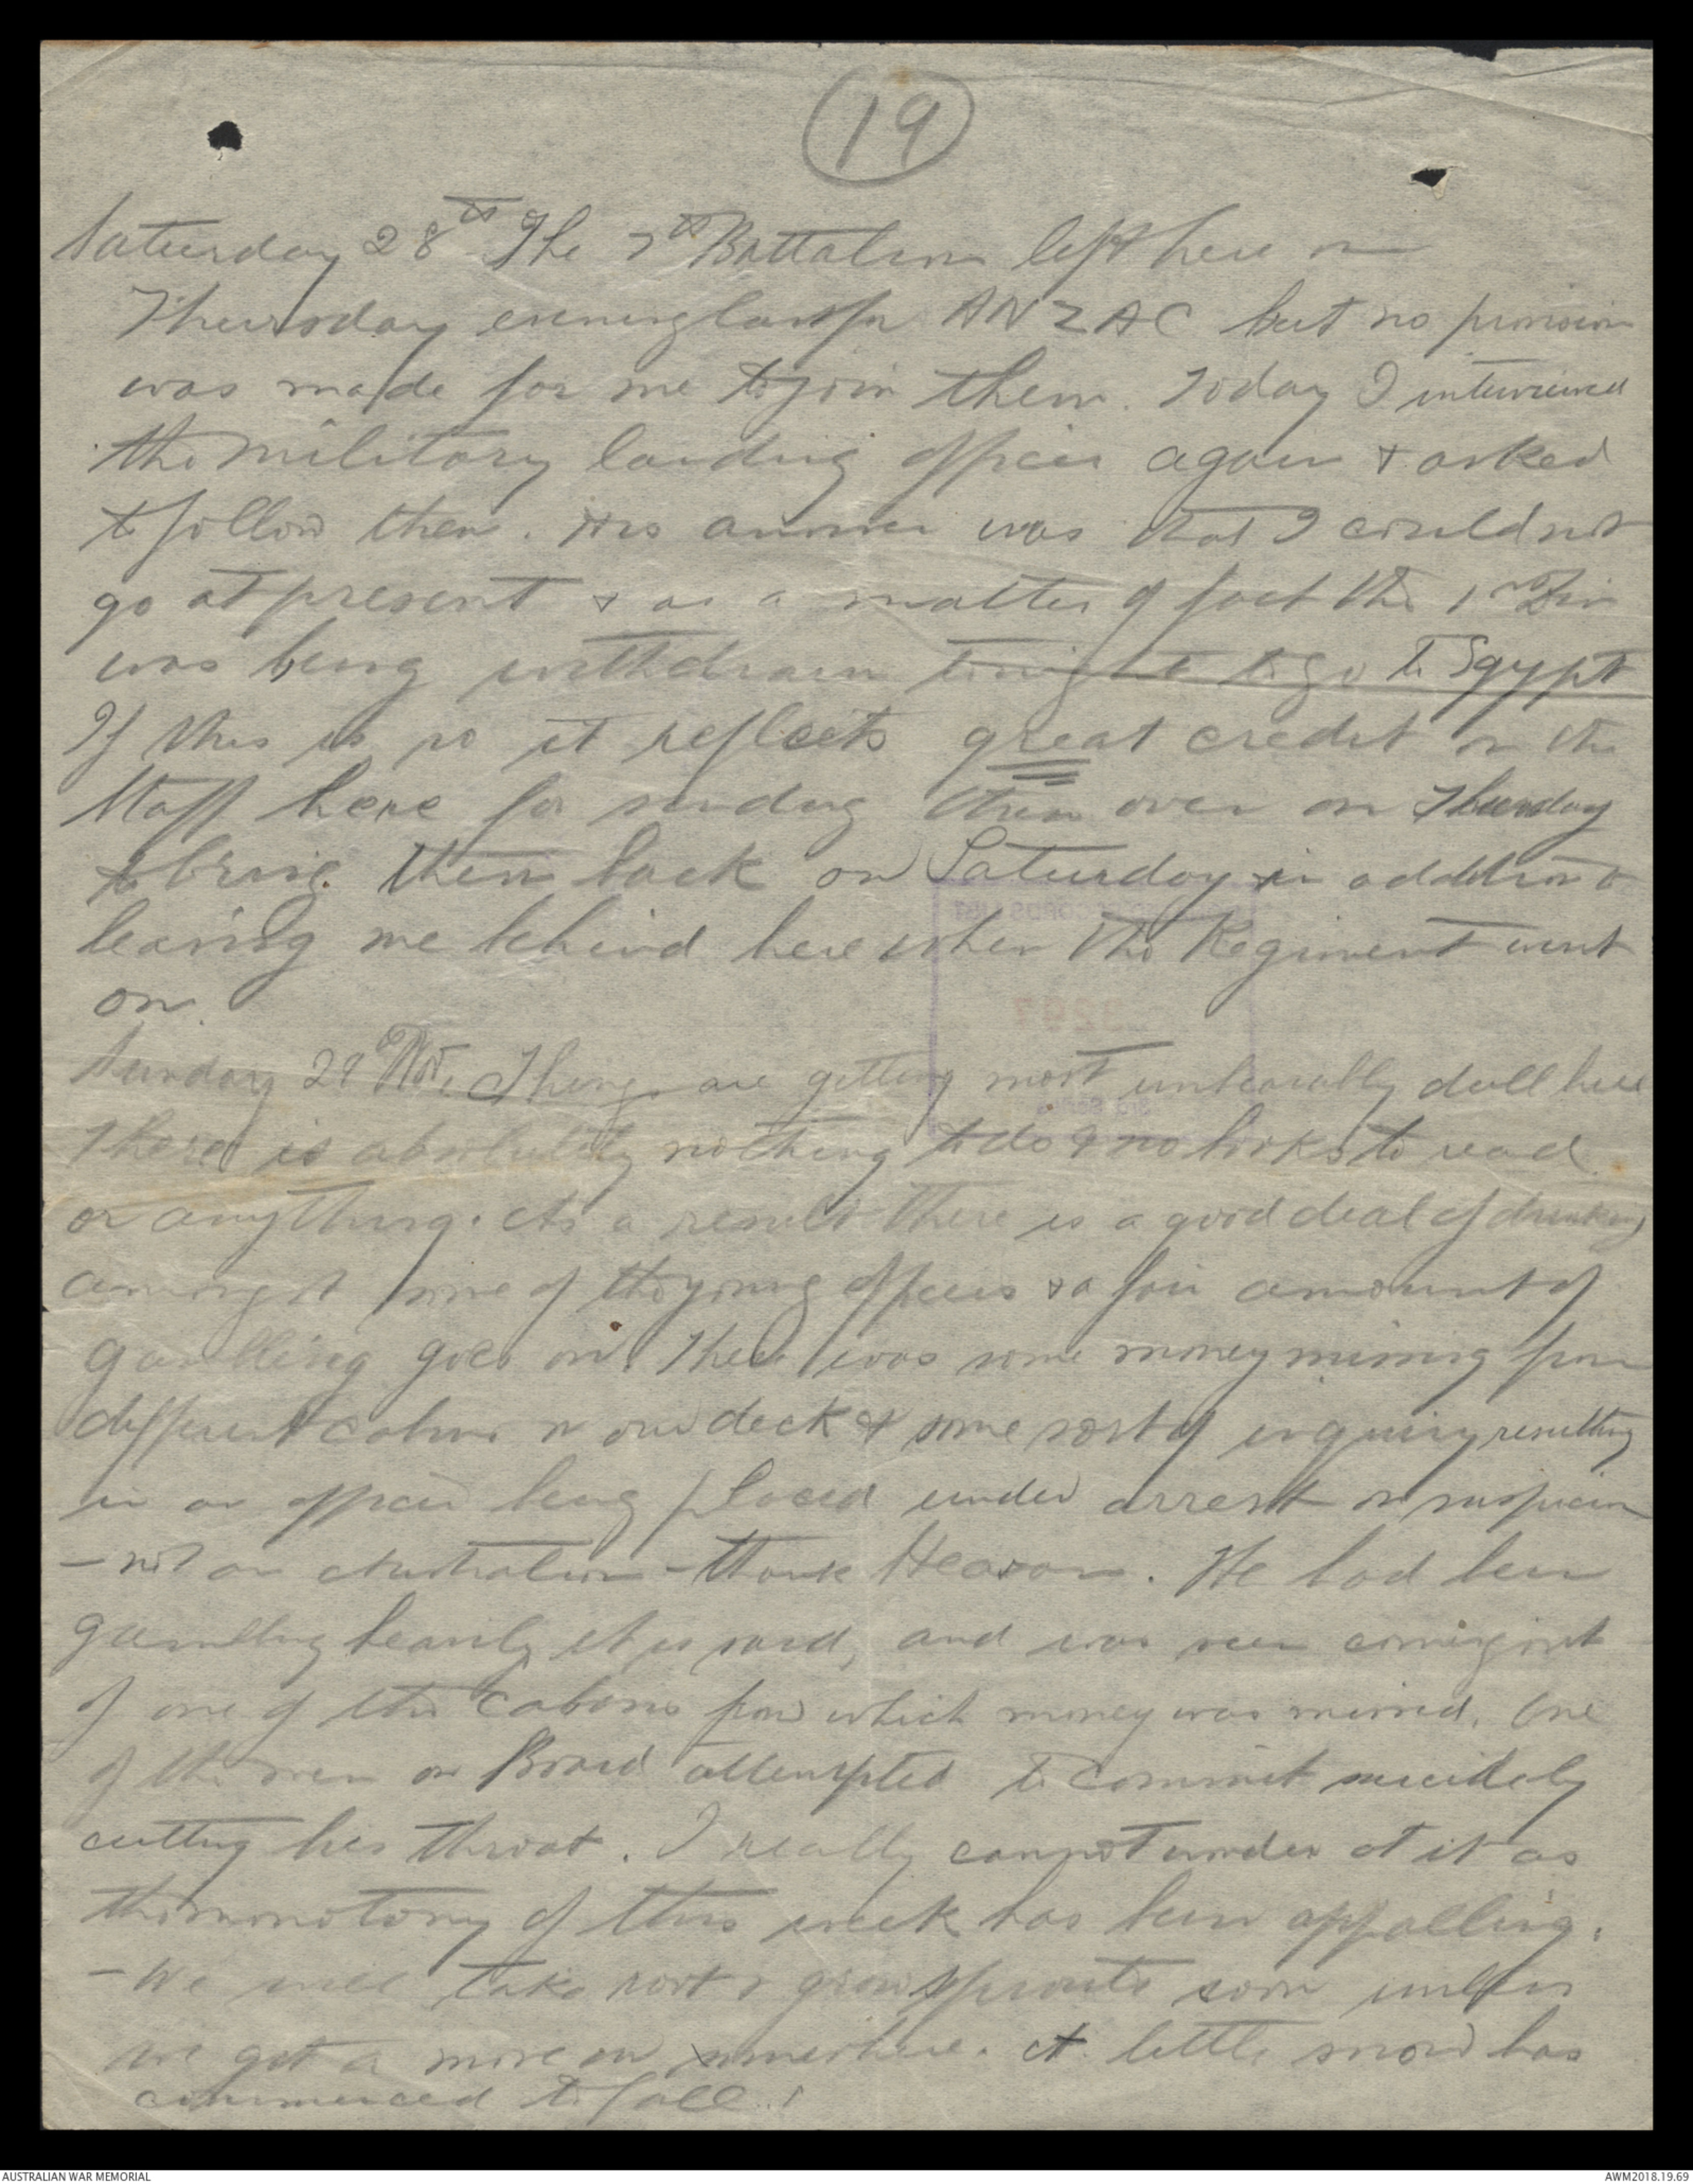 19
Saturday 28th The 7th Battalion left here on
Thursday evening last for ANZAC but no provision
was made for me to join them. Today I interviewed
the military landing officer again & asked
to follow them. His answer was that I could not
go at present & as a matter of fact the 1st Div
was being withdrawn tonight to go to Egypt
If this is so it reflects great credit on the
Staff here for sending them over on Thursday
to bring them back on Saturday in addition to
leaving me behind here when the Regiment went
on.
Sunday 29th Nov. Things are getting most unbearably dull here
There is absolutely nothing to do & no books to read
or anything. As a result there is a good deal of drinking
amongst some of the young officers & a fair amount of
gambling goes on. There was some money missing from
different cabins on our deck & some sort of inquiry resulting
in an officer being placed under arrest on suspicion
- not an Australian - thank Heaven. He had been
gambling heavily it is said, and was seen coming out
of one of the cabins from which money was missed. One
of the men on Board attempted to commit suicide by
cutting his throat. I really cannot wonder at it as
the monotony of this week has been appalling.
- We will take root & grow sprouts soon unless
we get a move on somewhere. A little snow has
commenced to fall.!
AUSTRALIAN WAR MEMORIAL
AWM2018.19.69